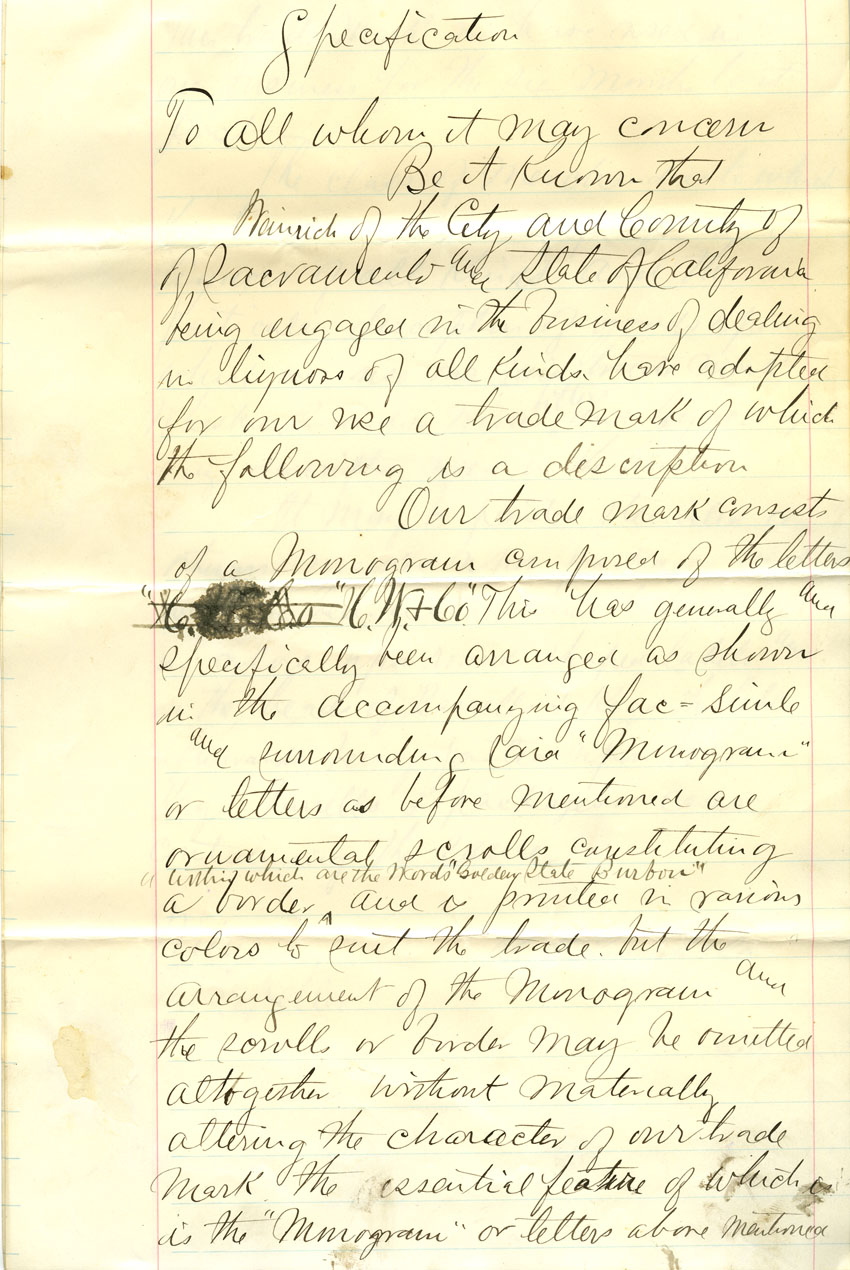 Specification
To all whom it may concern
Be it Known that
Weinrich of the City and County of
of Sacramento and State of California
being engaged in the business of dealing
in liquors of all kinds. have adopted
for our use a trade mark of which
the following is a description
Our trade mark consists
of a Monogram composed of the letters
"H. Co "H. W. & Co." This has generally and
specifically been arranged as shown
in the accompanying fac=simile
and surrounding said "Monogram"
or letters as before mentioned are
ornamental scrolls constituting
within which are the Words "Golden State Burbon"
a border, and is printed in various
colors to suit the trade. but the
arrangement of the Monogram and
the scrolls or border may be omitted
altogether without materially
altering the character of our trade
mark the essential feature of which is
is the "Monogram" or letters above mentioned